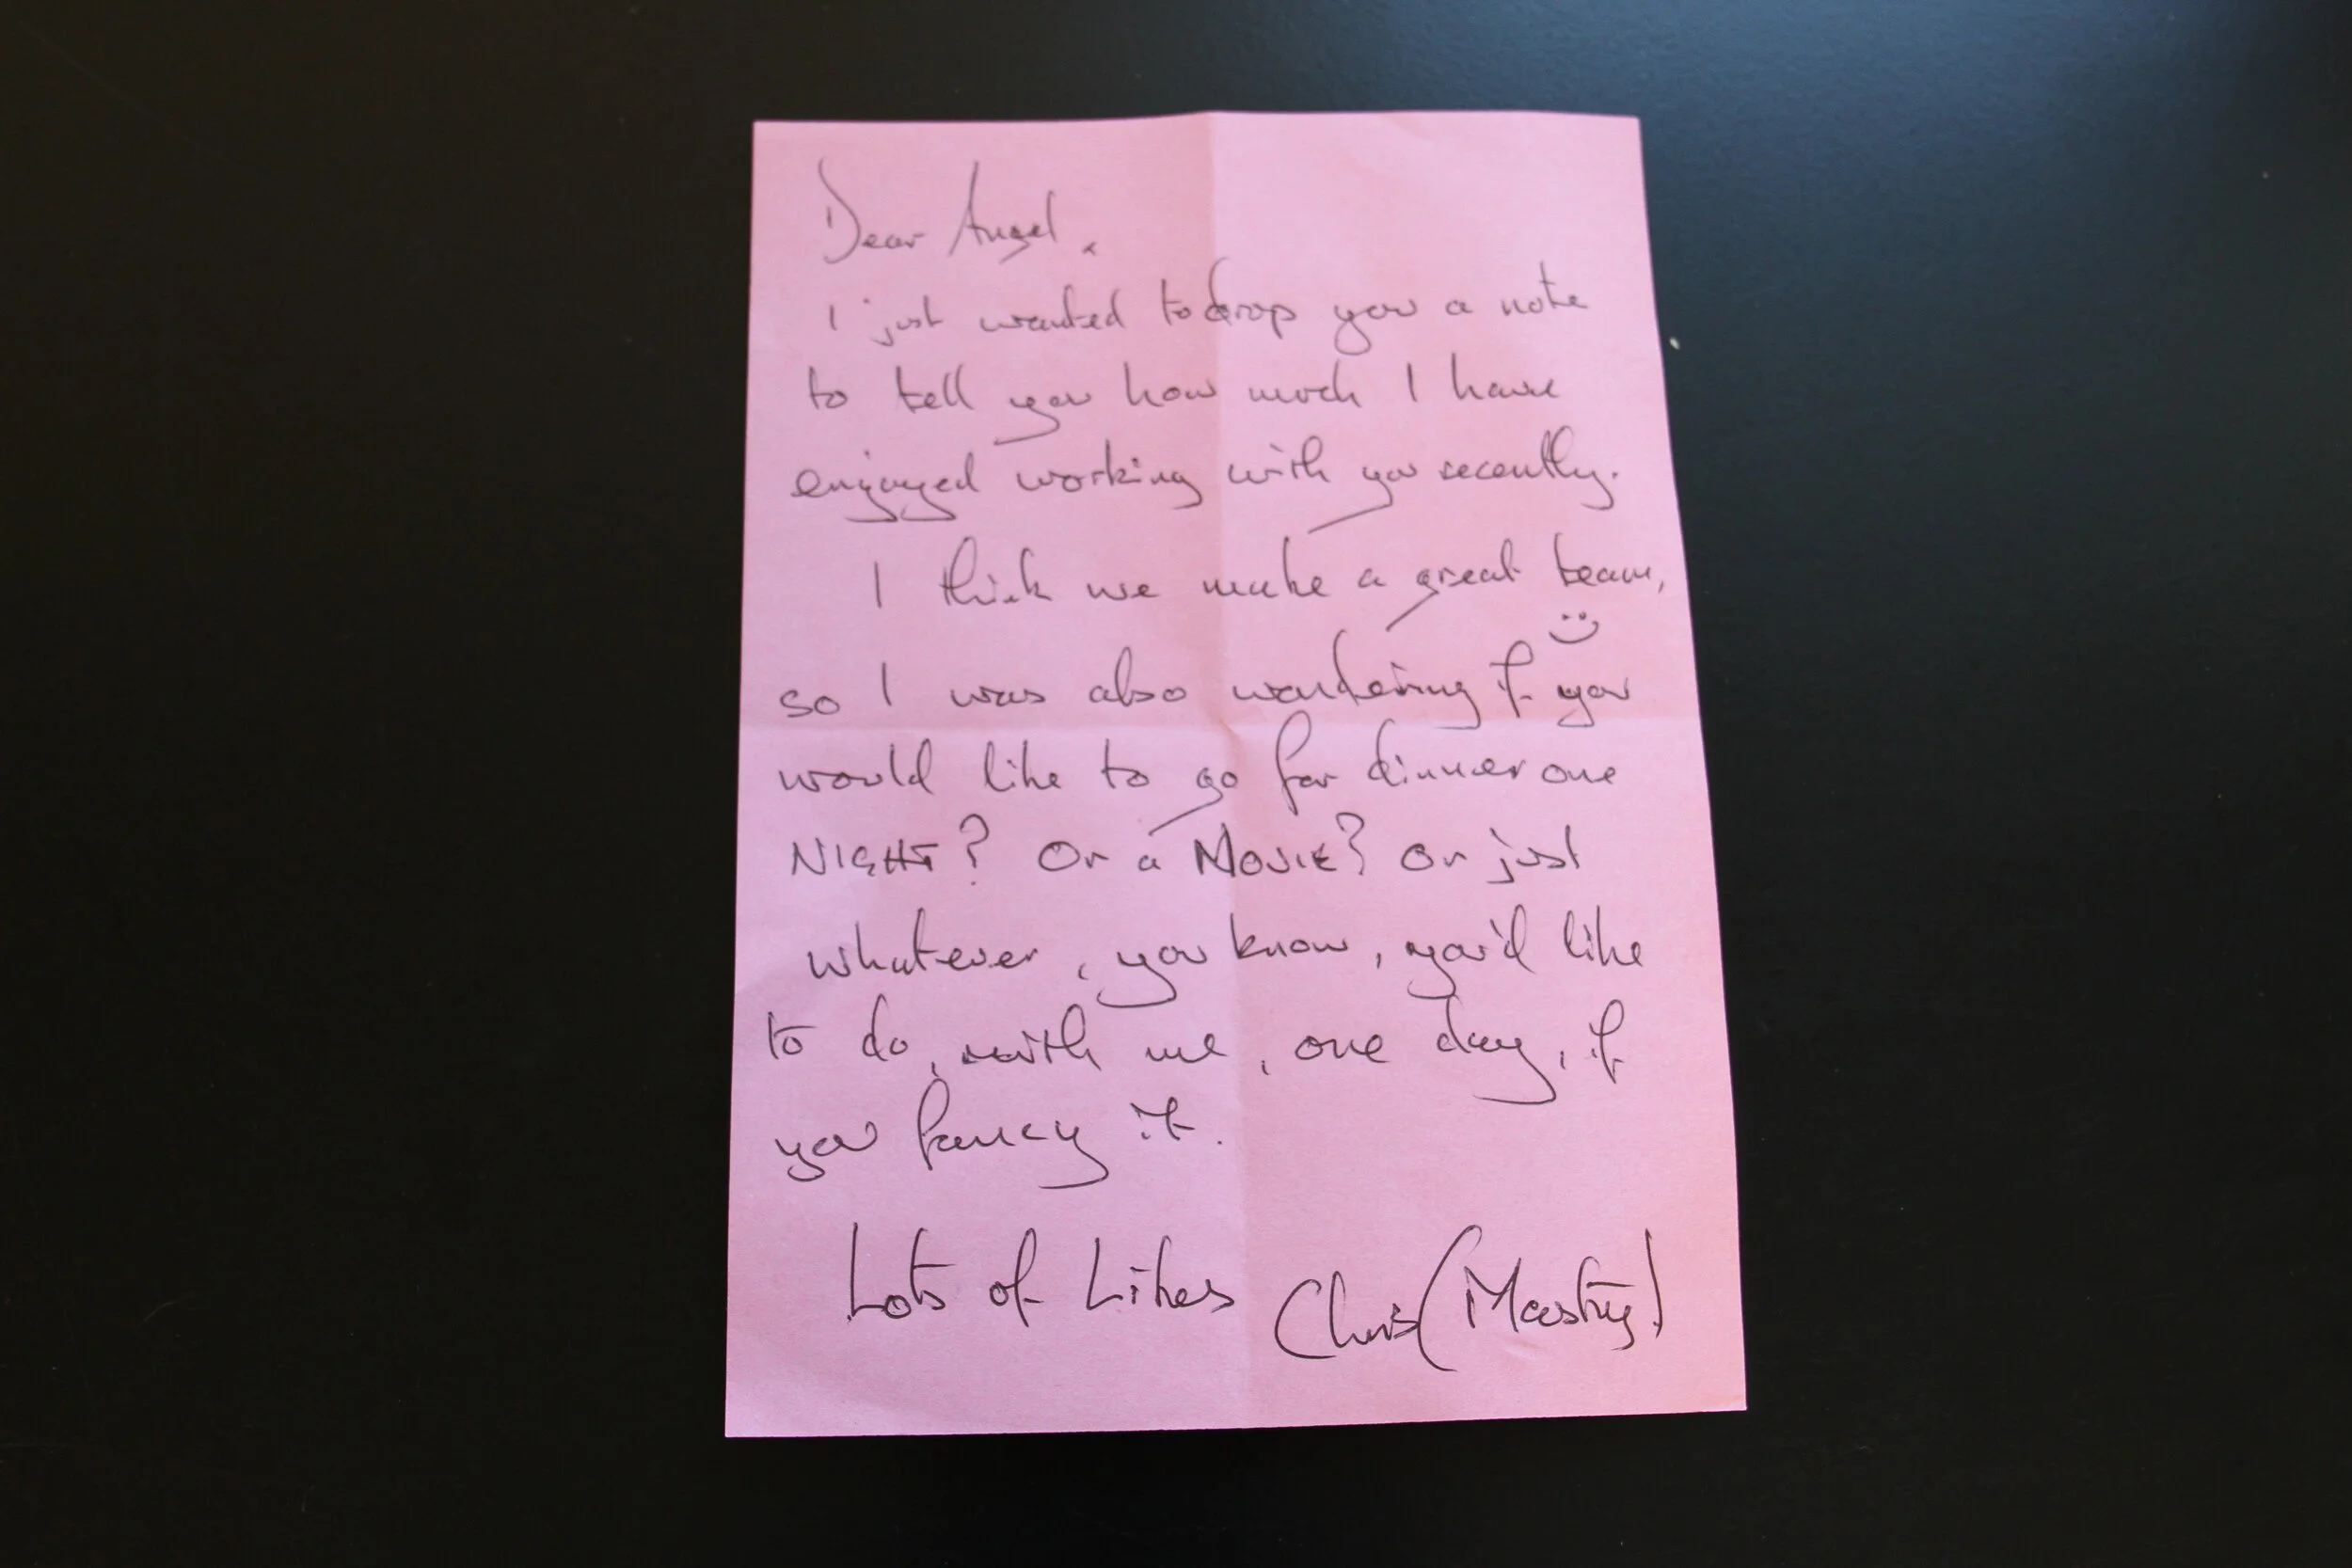 Dear Angel,
I just wanted to drop you a note
to tell you how much I have
enjoyed working with you recently.
I think we make a great team,
so I was also wondering if you
would like to go for dinner one
NIGHT? Or a MOVIE? Or just
whatever, you know, you'd like
to do, with me, one day, if
you fancy it.
Lots of Likes Chris